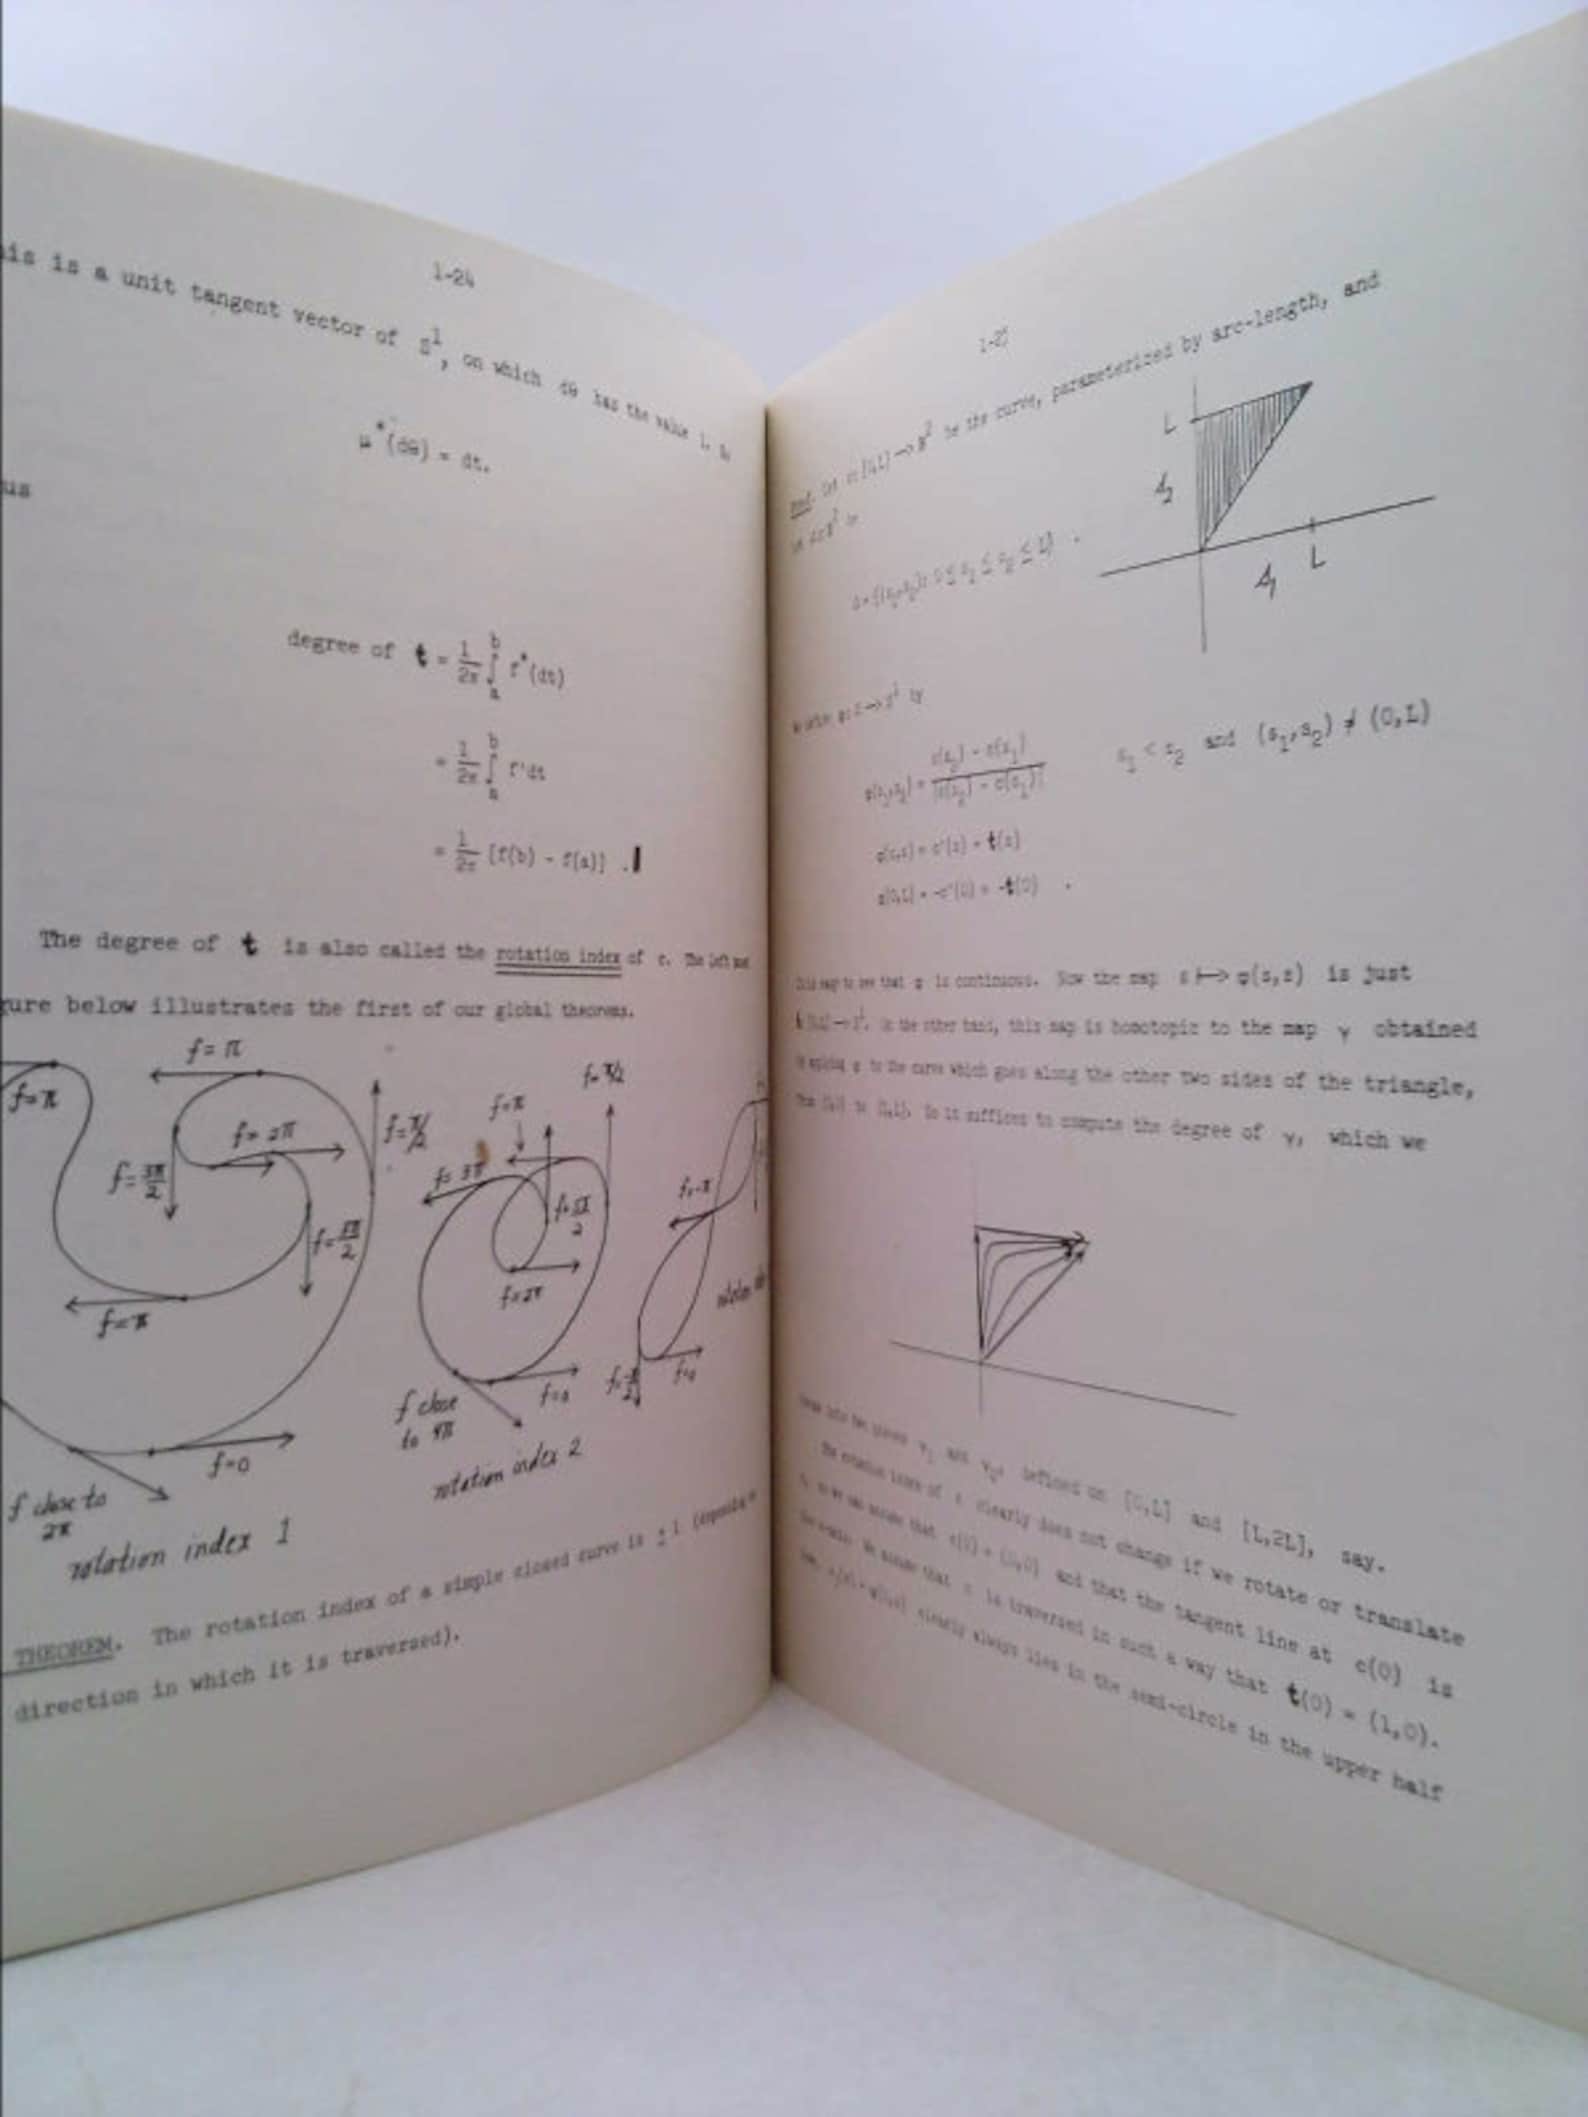 1-24
is is a unit tangent vector of S¹, on which dθ has the value 1. So
μ*(dθ) = dt.
us
degree of t = 1/2π ∫ₐᵇ f*(dt)
= 1/2π ∫ₐᵇ f'dt
= 1/2π [f(b) - f(a)] .
The degree of t is also called the rotation index of c. The left
ure below illustrates the first of our global theorems.
f=π
f=π
f=2π
f=3π/2
f=π/2
f=3π/2
f=π
f=0
f close to
2π
rotation index 1
f=π
f=π/2
f=3π
f=5π/2
f=2π
f=0
f close
to 4π
rotation index 2
f=-π
f=-π/2
f=0
rotation
THEOREM. The rotation index of a simple closed curve is ±1 (depending
direction in which it is traversed).
Proof. Let c: [0,L] → R² be the curve, parameterized by arc-length, and
let Δ⊂R² be
Δ = {(s₁,s₂): 0 ≤ s₁ ≤ s₂ ≤ L} .
L
s₂
s₁
L
We define φ: Δ → S¹ by
φ(s₁,s₂) = c(s₂) - c(s₁) / |c(s₂) - c(s₁)| s₁ < s₂ and (s₁,s₂) ≠ (0,L)
φ(s,s) = c'(s) = t(s)
φ(0,L) = -c'(0) = -t(0) .
It is easy to see that φ is continuous. Now the map s ↦ φ(s,s) is just
t: [0,L] → S¹. On the other hand, this map is homotopic to the map γ obtained
by applying φ to the curve which goes along the other two sides of the triangle,
from (0,0) to (L,L). So it suffices to compute the degree of γ, which we
break into two pieces γ₁ and γ₂, defined on [0,L] and [L,2L], say.
The rotation index of c clearly does not change if we rotate or translate
c, so we can assume that c(0) = (0,0) and that the tangent line at c(0) is
the x-axis. We assume that c is traversed in such a way that t(0) = (1,0).
clearly always lies in the semi-circle in the upper half